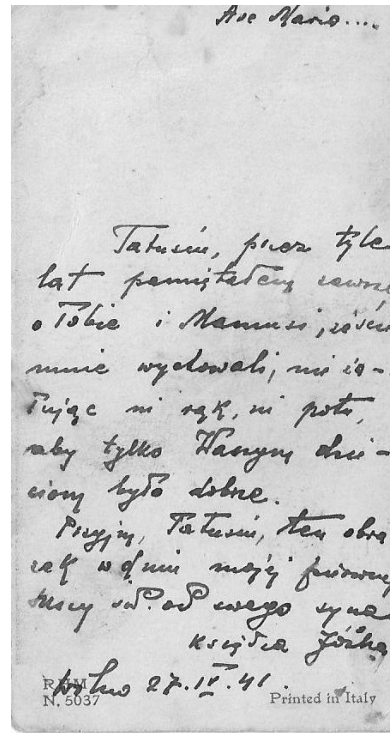 Ave Mario....
Tatusiu, przez tyle
lat pamiętałem zawsze
o Tobie i Mamusi, żeście
mnie wychowali, nie ża-
łując ni rąk, ni potu,
aby tylko Waszym dzie-
ciom było dobrze.
Przyjm, Tatusiu, ten obra
zek w dniu mojej pierwszej
mszy św. od swego syna
księdza Józka
27.IV.41.
N. 5037
Printed in Italy